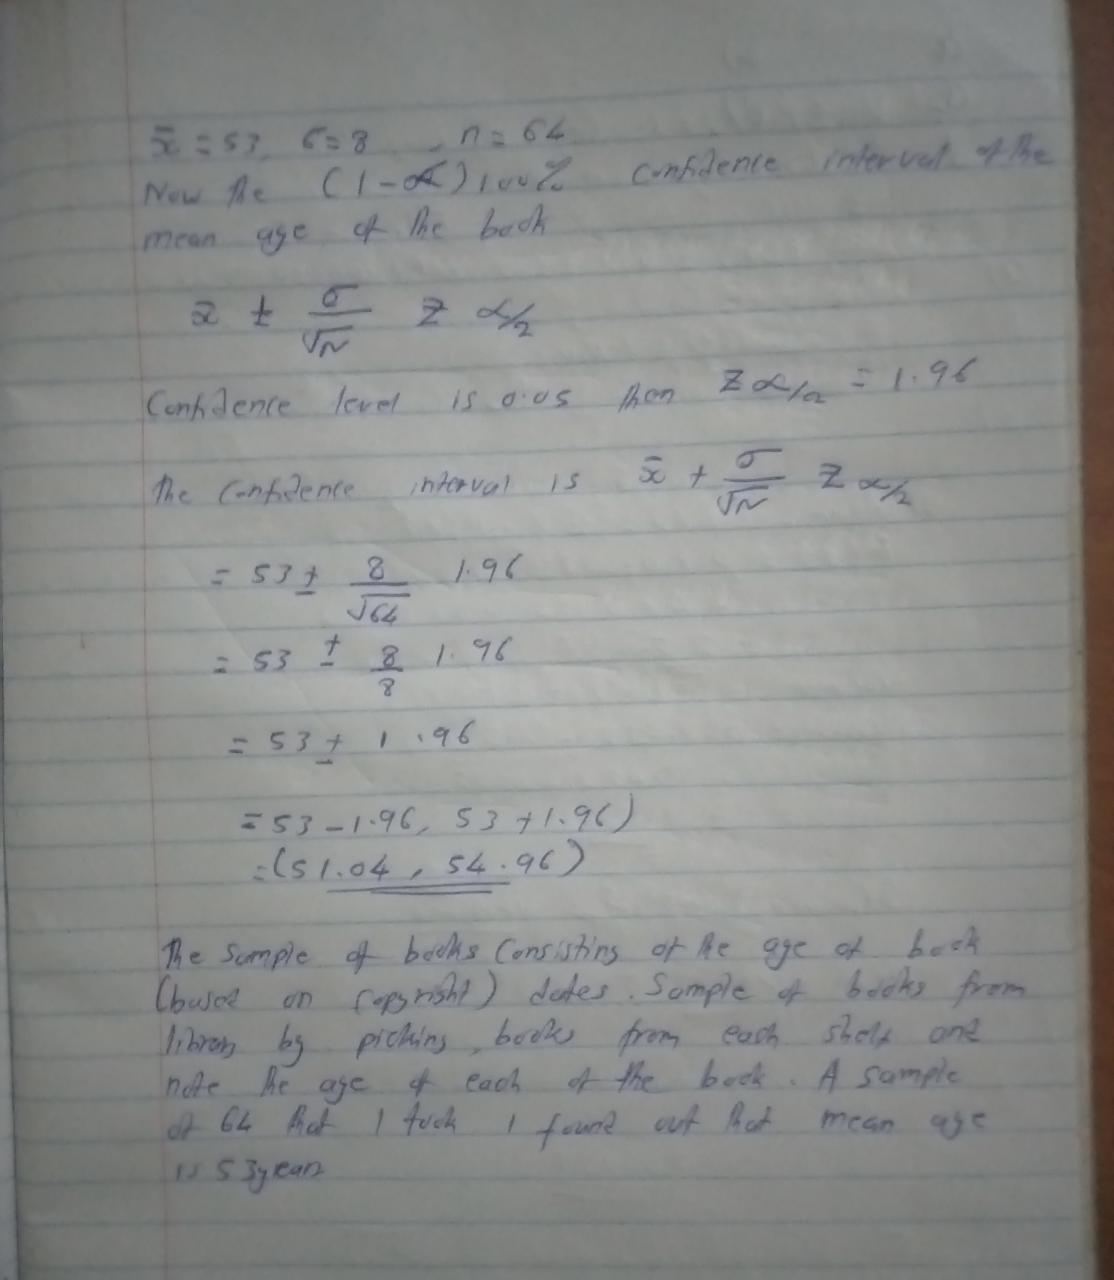 x̄ = 53, σ = 8, n = 64
Now the (1-α)100% confidence interval of the
mean age of the book
x ± σ/√N Z α/2
Confidence level is 0.05 then Z α/2 = 1.96
The confidence interval is x̄ + σ/√N Z α/2
= 53 ± 8/√64 1.96
= 53 ± 8/8 1.96
= 53 ± 1.96
= 53 - 1.96, 53 + 1.96)
= (51.04, 54.96)
The sample of books consisting of the age of book
(based on copyright) dates. Sample of books from
library by picking, books from each shelf and
note the age of each of the book. A sample
of 64 that I took I found out that mean age
is 53years